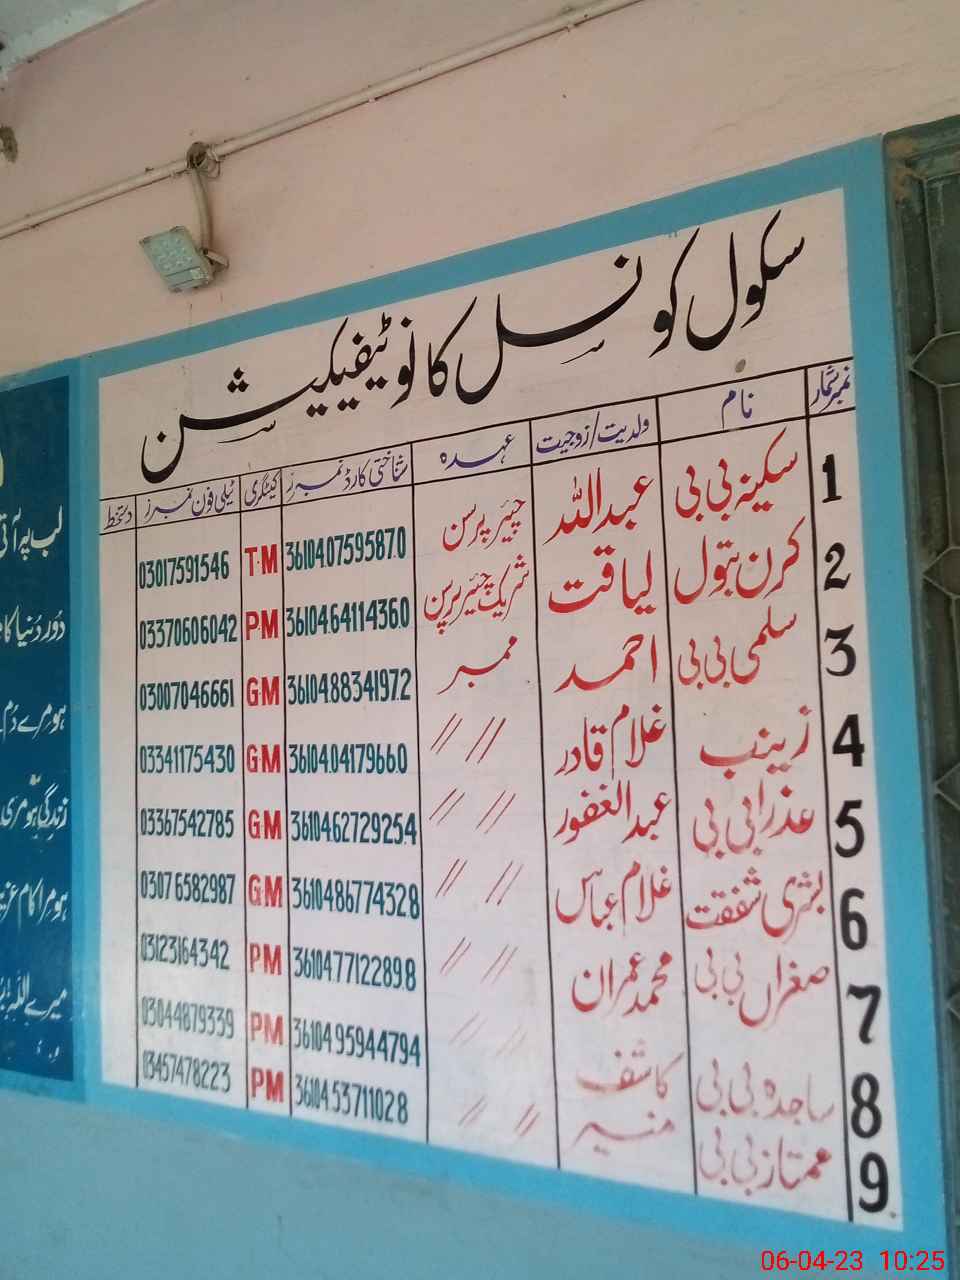 سکول کونسل کا نوٹیفیکیشن
نمبر شمار نام ولدیت/زوجیت عہدہ شناختی کارڈ نمبرز کیٹگری ٹیلی فون نمبرز دستخط
1 سکینہ بی بی عبداللہ چیئر پرسن 36104.0759587.0 T.M 03017591546
2 کرن بتول لیاقت شریک چیئر پرسن 36104.6411436.0 P.M 03370606042
3 سلمی بی بی احمد ممبر 36104.8834197.2 G.M 03007046661
4 زینب غلام قادر // // 36104.0417966.0 G.M 03341175430
5 عذرا بی بی عبدالغفور // // 36104.6272925.4 G.M 03367542785
6 بشری شفقت غلام عباس // // 36104.8677432.8 G.M 03076582987
7 صغراں بی بی محمد عمران // // 36104.7712289.8 P.M 03123164342
8 ساجدہ بی بی کاشف // // 36104.9594479.4 P.M 03044879339
9 ممتاز بی بی منیر // // 36104.5371102.8 P.M 03457478223
لب پہ آتی
دور دنیا کا
ہو مرے دم
زندگی ہو مری
ہو مرا کام غر
میرے اللہ! بُر
06-04-23 10:25